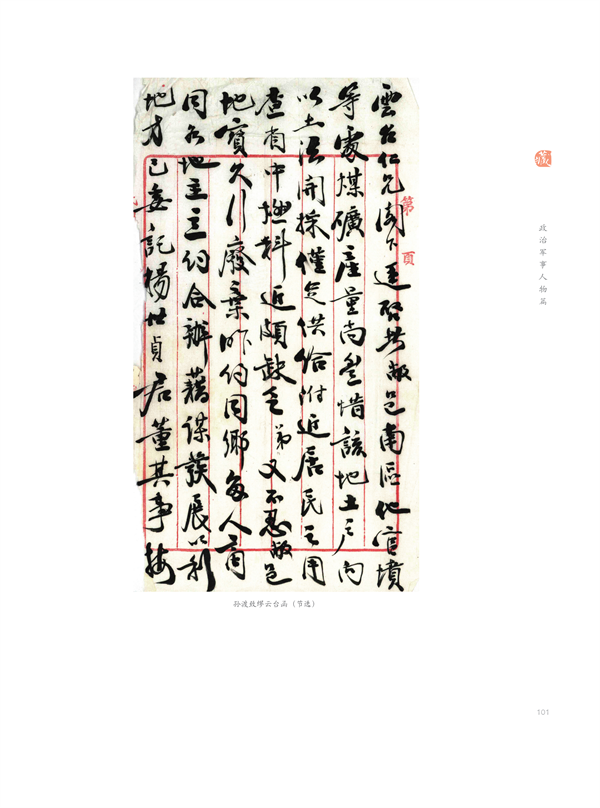 雲台仁兄閣下逕啓者敝邑南區他官墳
等處煤礦產量尚豐惜該地土戶向
以土法開採僅足供給附近居民之用
查省中燃料近頗缺乏弟又不忍敝邑
地寶久行廢棄昨約同鄉多人商
同各地主立約合辦藉謀發展以利
地方已委託楊世貞君董其事務
第 頁
藏
政治军事人物篇
孙渡致缪云台函（节选）
101